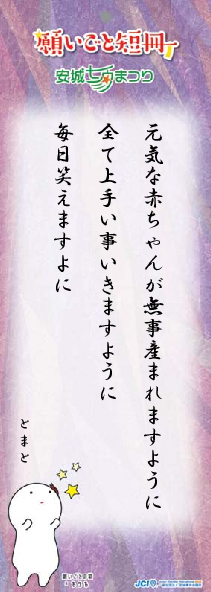 願いごと短冊
安城七夕まつり
元気な赤ちゃんが無事産まれますように
全て上手い事いきますように
毎日笑えますよに
とまと
JCI